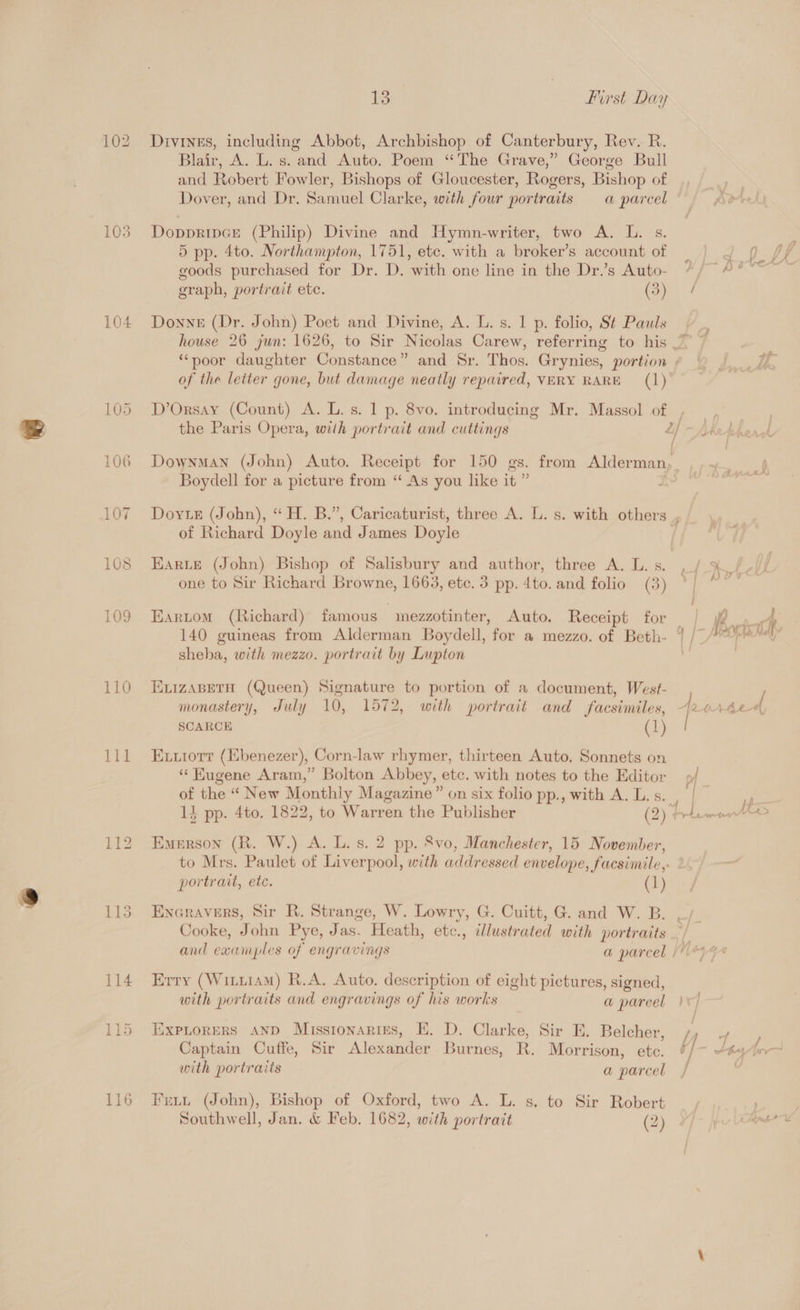 13 First Day
102 Divines, including Abbot, Archbishop of Canterbury, Rev. R.
Blair, A. L. s. and Auto. Poem “The Grave,” George Bull
and Robert Fowler, Bishops of Gloucester, Rogers, Bishop of
Dover, and Dr. Samuel Clarke, with four portraits a parcel
103 Doddridge (Philip) Divine and Hymn-writer, two A. L. s.
5 pp. 4to. Northampton, 1751, etc. with a broker’s account of
goods purchased for Dr. D. with one line in the Dr.’s Auto-
graph, portrait etc. (3)
104 Donne (Dr. John) Poet and Divine, A. L. s. 1 p. folio, St Pauls
house 26 jun: 1626, to Sir Nicolas Carew, referring to his
“poor daughter Constance” and Sr. Thos. Grynies, portion
of the letter gone, but damage neatly repaired, VERY RARE (1)
105 D’Orsay (Count) A. L. s. 1 p. 8vo. introducing Mr. Massol of
the Paris Opera, with portrait and cuttings
106 Downman (John) Auto. Receipt for 150 gs. from Alderman
Boydell for a picture from “As you like it”
107 Doyle (John), “H. B.”, Caricaturist, three A. L. s. with others
of Richard Doyle and James Doyle
108 Earle (John) Bishop of Salisbury and author, three A. L. s.
one to Sir Richard Browne, 1663, etc. 3 pp. 4to. and folio (3)
109 Earlom (Richard) famous mezzotinter, Auto. Receipt for
140 guineas from Alderman Boydell, for a mezzo. of Beth-
sheba, with mezzo. portrait by Lupton
110 Elizabeth (Queen) Signature to portion of a document, West-
monastery, July 10, 1572, with portrait and facsimiles,
SCARCE (1)
111 Elliott (Ebenezer), Corn-law rhymer, thirteen Auto. Sonnets on
“Eugene Aram,” Bolton Abbey, etc. with notes to the Editor
of the “New Monthly Magazine” on six folio pp., with A. L. s.
1½ pp. 4to. 1822, to Warren the Publisher (2)
112 Emerson (R. W.) A. L. s. 2 pp. 8vo, Manchester, 15 November,
to Mrs. Paulet of Liverpool, with addressed envelope, facsimile,
portrait, etc. (1)
113 Engravers, Sir R. Strange, W. Lowry, G. Cuitt, G. and W. B.
Cooke, John Pye, Jas. Heath, etc., illustrated with portraits
and examples of engravings a parcel
114 Etty (William) R.A. Auto. description of eight pictures, signed,
with portraits and engravings of his works a parcel
115 Explorers and Missionaries, E. D. Clarke, Sir E. Belcher,
Captain Cuffe, Sir Alexander Burnes, R. Morrison, etc.
with portraits a parcel
116 Fell (John), Bishop of Oxford, two A. L. s. to Sir Robert
Southwell, Jan. & Feb. 1682, with portrait (2)